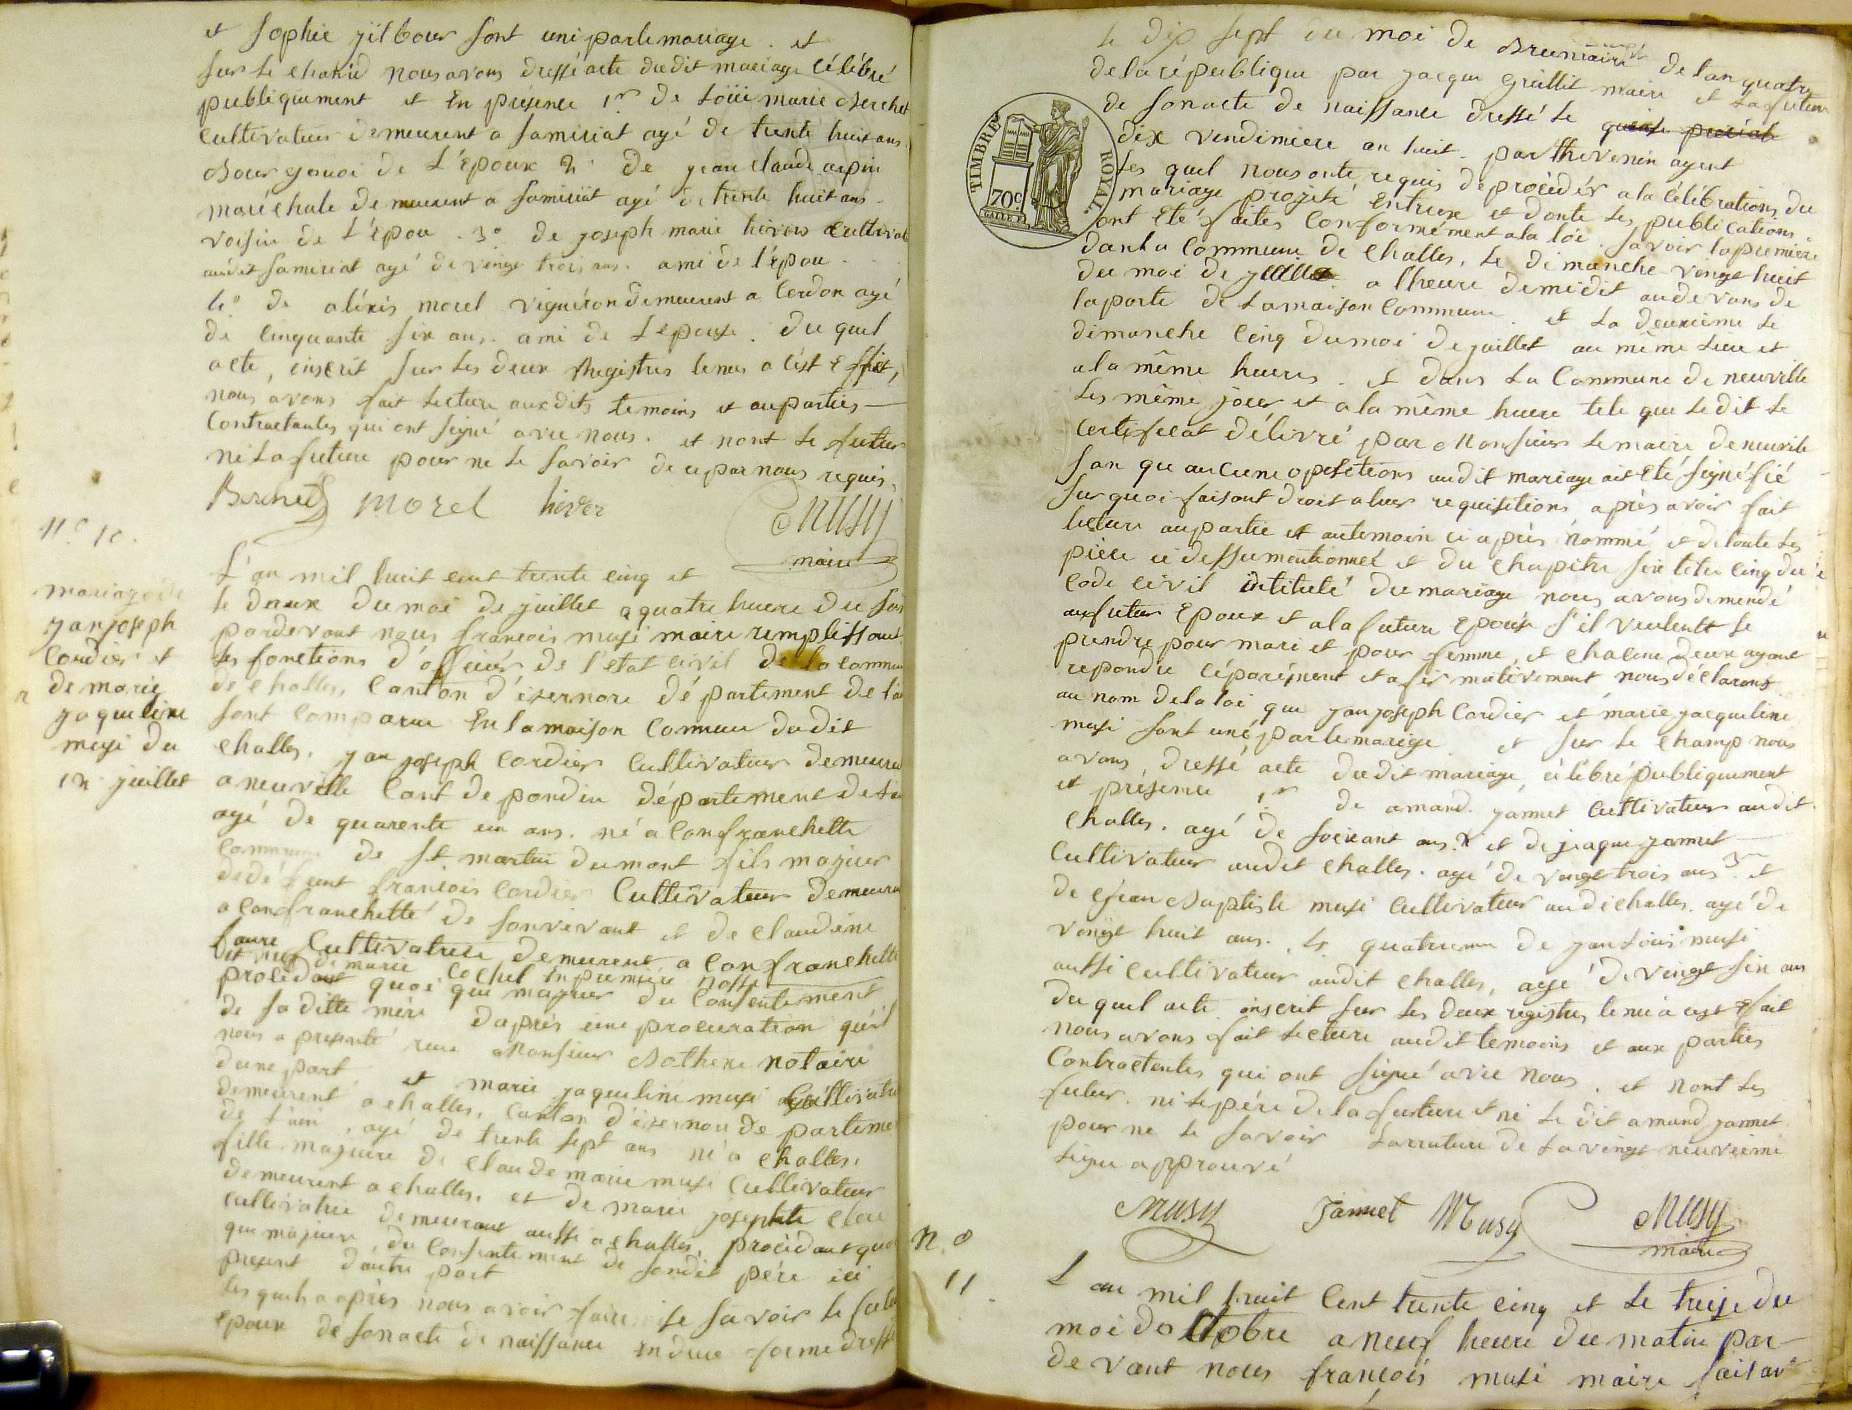 et Sophie jilbour sont uni parle mariage. et
sur le chand nous avons dressé acte dudit mariage célébré
publiquement et En présence 1er de Loüi marie Berchet
cultivateur demeurent a samiriat agé de trente huit ans.
de L'Epoux 2° de jean claude arpin
maréchale demeurent a samiriat agé de trente huit ans.
voisin de L'épou. 3° de joseph marie hiver cultivat
audit samiriat agé de vingt trois ans. ami de l'épou.
4° de aléxis morel vigneron demeurent a Cerdon agé
de cinquante six ans. ami de L'epouse. du quel
acte, inscrit sur les deux Registres tenus a cest Effet,
nous avons fait Lecture auxdits temoins et auparties
Contractantes qui ont signé avec nous. et nont le futur
ni La future pour ne le savoir de ce par nous requis.
Berchet morel hiver Musy
maire
N° 10.
mariage de
jan joseph
Cordier et
de marie
jaqueline
musi du
12 juillet
L'an mil huit cent trente cinq et
le douze du moi de juillet a quatre heure du soir
pardevant nous francois musi maire remplissant
les fonctions d'officier de l'état civil de la commune
de challes, canton d'izernore département de l'ain
sont comparue En la maison commune dudit
challes. jan joseph cordier cultivateur demeurent
a neuville Cant de pondin département de Lain
agé de quarente un ans. né a Confranchette
commune de St martin dumont fils majeur
de défeunt francois cordier Cultivateur demeurent
a confranchette de sonvivant et de claudine
faure Cultivatrice demeurent a confranchette
procédant quoi que majeur du consentement
de sa ditte mère d'après une procuration qu'il
nous a presenté reçue Monsieur Bothere notaire
dune part et marie jaqueline musi Cultivatrice
demeurent a challes, canton d'izernore departement
de L'ain, agé de trente sept ans né a challes.
fille majeure de claude marie musi Cultivateur
demeurent a challes. et de marie josephte
cultivatrice demeurant aussi a challes, procédant quoi
que majeure du consentement de sondit pére ici
present d'autre part
Les quels a après nous avoir faire le savoir le futur
Epoux de sonacte de naissance En due forme dressé
le dix sept du moi de Brumaire de lan quatre
de la république par jacque Grillit maire et La future
de sonacte de naissance dressé le
dix vendimiere an huit. par thevenin agent
Les quel nous onte requis de procédér a la célébrations du
mariage projeté entreux et donte Les publications
ont été faites Conformément ala loi. savoir la premiere
danla commune de challes, le dimanche vingt huit
du moi de a lheure demidit audevans de
la porte de La maison commune. et La deuxieme Le
dimanche cinq dumoi de juillet au même lieu et
ala même heures. et dans La Commune de neuville
Les même jour et a la même heure tele que le dit le
certificat délivré par Monsieur Lemaire deneuville
san qu'aucune opositions audit mariage ait été signéfié
sur quoi faisant droit a leur requisitions après avoir fait
lecture aupartie et autemoin ci après nommé et de toute Les
piéce ci dessu mentionneé et du chapitre six titre cinq du
code civil intitulé du mariage nous avons demendé
aufutur Epoux et a la future Epouse s'il veulent se
prendre pour mari et pour femme, et chacune deux ayant
repondu céparément et afirmativement nous déclarons
au nom de la loi que jan joseph Cordier et marie jacqueline
musi sont uni par le mariage et sur le champ nous
avons dressé acte dudit mariage célébré publiquement
et présence 1er de amand jannet cultivateur audit
challes. agé de soixant ans. 2 et de jaque jannet
Cultivateur audit challes. agé de vingt trois ans 3me et
de jean Baptiste musi cultivateur audichalles. agé de
vingt huit ans. Le quatrieme de jan Loüi musi
aussi cultivateur audit challes, agé de vingt six ans
du quel acte. inscrit sur les deux registres tenu a cest Efait
nous avons fait lecture audit temoins et aux parties
Contractentes qui ont signé avec nous. et nont Les
futur. ni Le pére dela future et ni Le dit amand jannet.
pour ne le savoir La rature de La vingt neuvieme
ligne approuvé
Musy Jannet Musy Musy
maire
N. o
11.
L'an mil huit Cent trente cinq et Le treize du
moi doctobre a neuf heure du matin par-
devant nous francois musi maire faisant
TIMBRE ROYAL.
70c